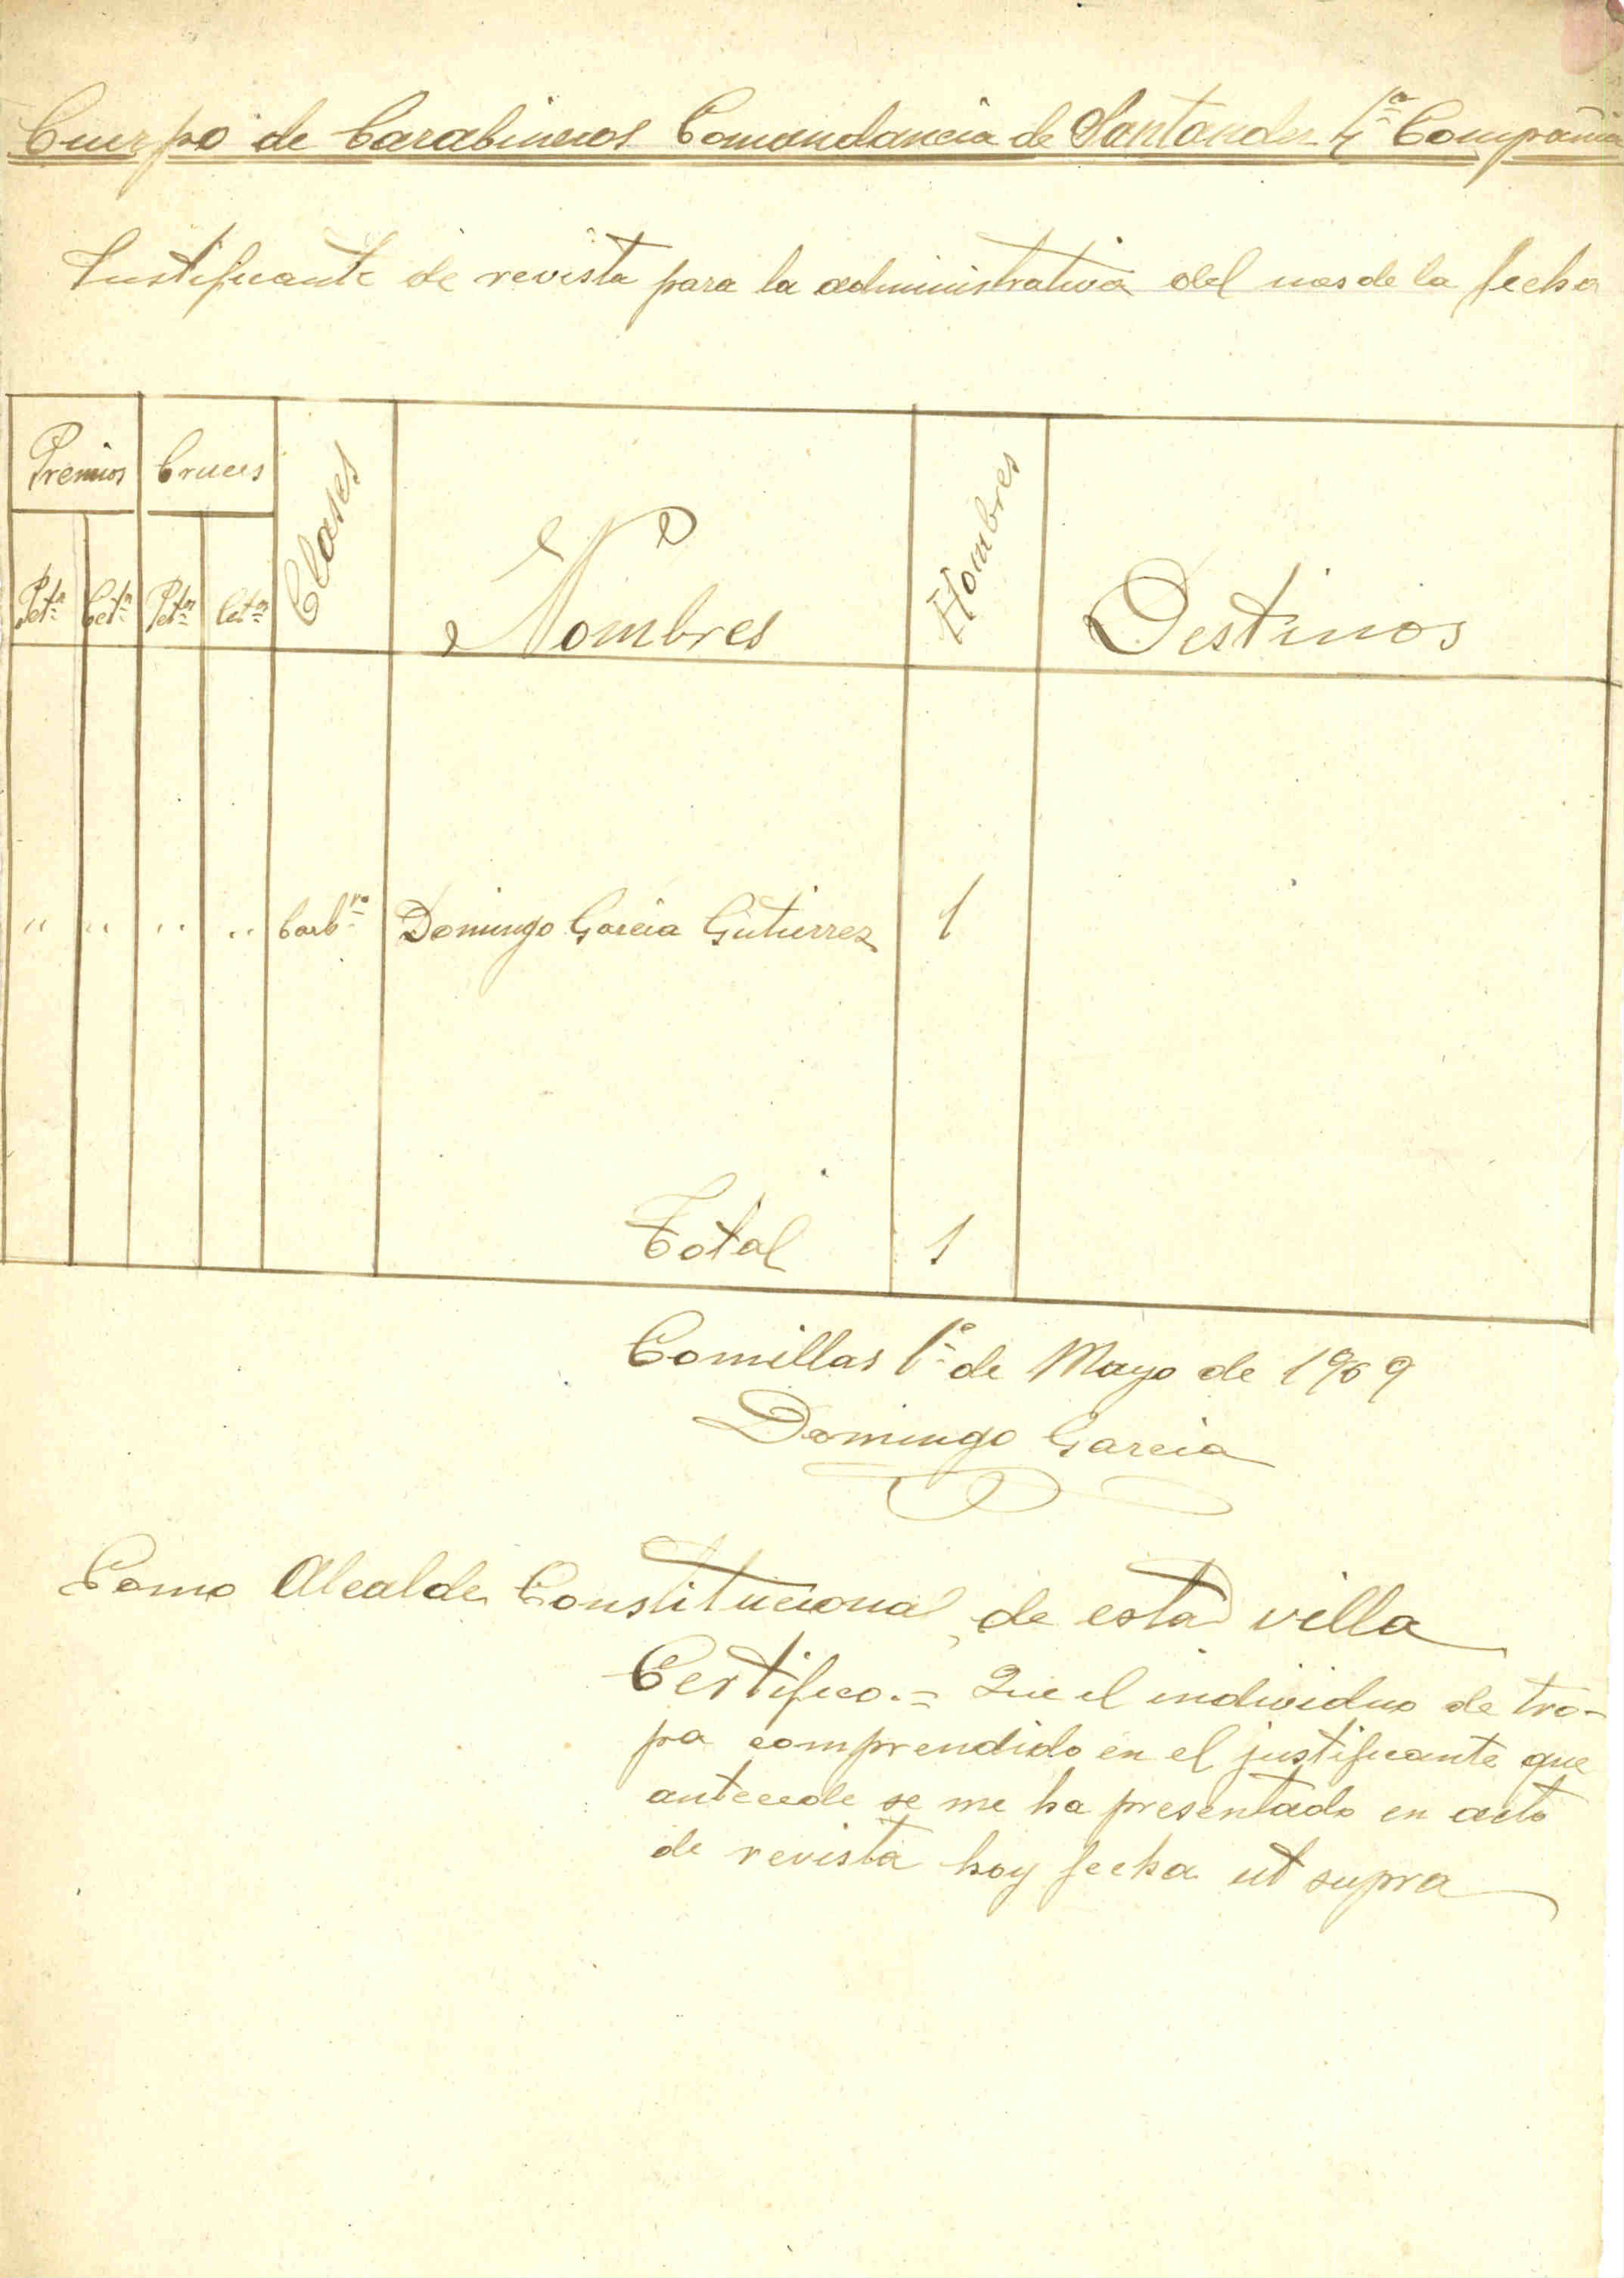 Cuerpo de Carabineros Comandancia de Santander 4ª Compañia
Justificante de revista para la administrativa del mes de la fecha
Premios Cruces Clases Nombres Hombres Destinos
Petas Cets Petas Cets
" " " " Carbro Domingo Garcia Gutierrez 1
Total 1
Comillas 1º de Mayo de 1909
Domingo Garcia
Como Alcalde Constitucional de esta villa
Certifico.= Que el individuo de tro-
pa comprendido en el justificante que
antecede se me ha presentado en acto
de revista hoy fecha ut supra